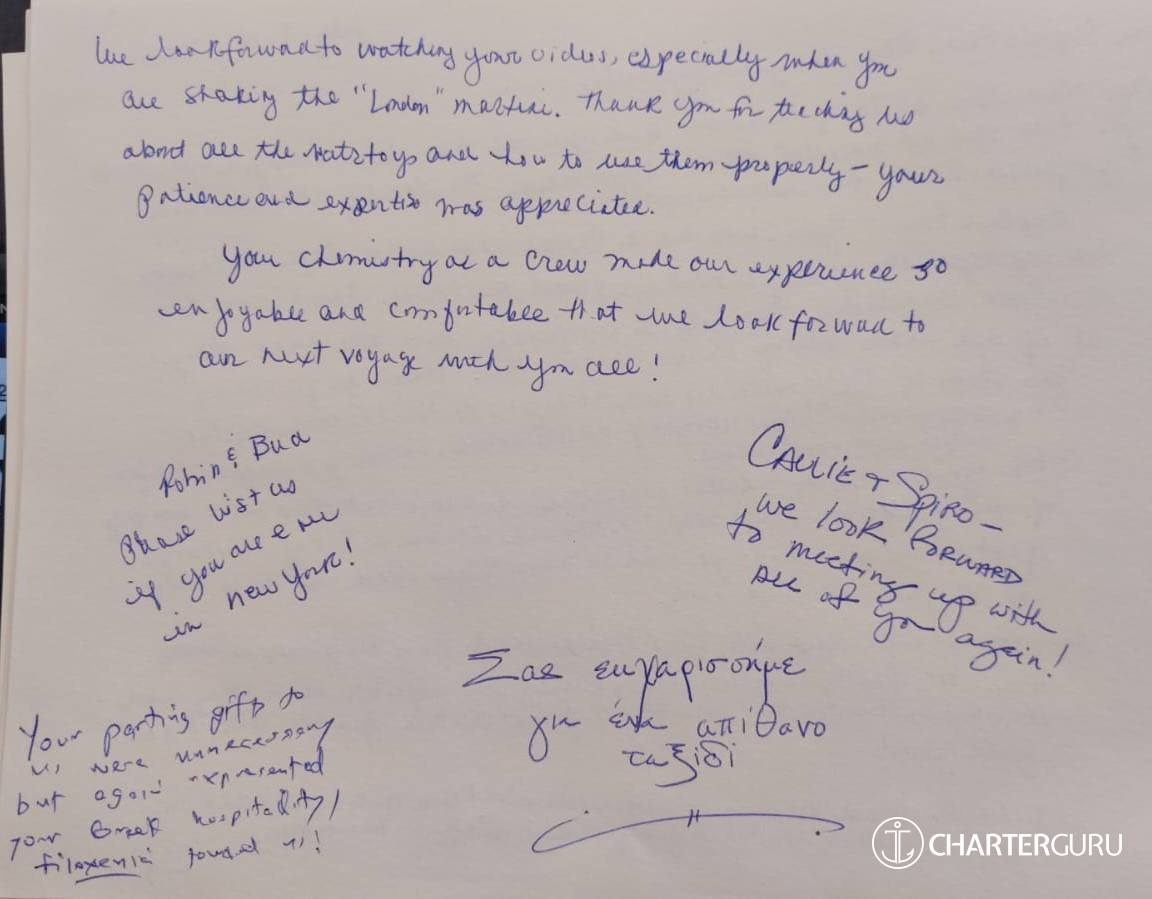 We look forward to watching your videos, especially when you
are shaking the "London" martini. Thank you for teaching us
about all the watertoys and how to use them properly – your
patience and expertise was appreciated.
Your chemistry as a crew made our experience so
enjoyable and comfortable that we look forward to
our next voyage with you all!
Robin & Bud
Please visit us
if you are ever
in new York!
CALLIE + SPIRO –
we look FORWARD
to meeting up with
All of you again!
Σας ευχαριστήμε
για ένα απίθανο
ταξίδι
Your parting gifts to
us were unnecessary
but again represented
your Greek hospitality/
filoxenia toward us!
CHARTERGURU